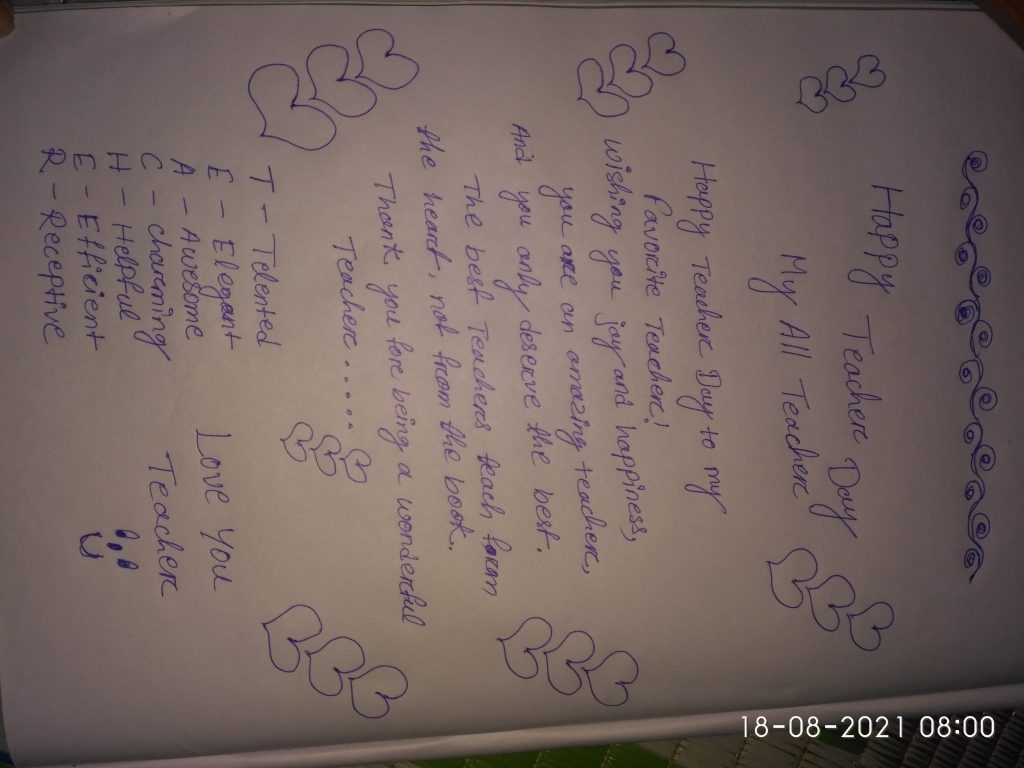 Happy Teacher Day
My All Teacher
Happy Teacher Day to my
Favorite Teacher!
Wishing you joy and happiness,
you are an amazing teacher,
And you only deserve the best.
The best Teachers teach from
the heart, not from the book.
Thank you fore being a wonderful
Teacher......
T - Telented
E - Elegant
A - Awesome
C - charming
H - Helpful
E - Efficient
R - Receptive
Love You
Teacher
18-08-2021 08:00